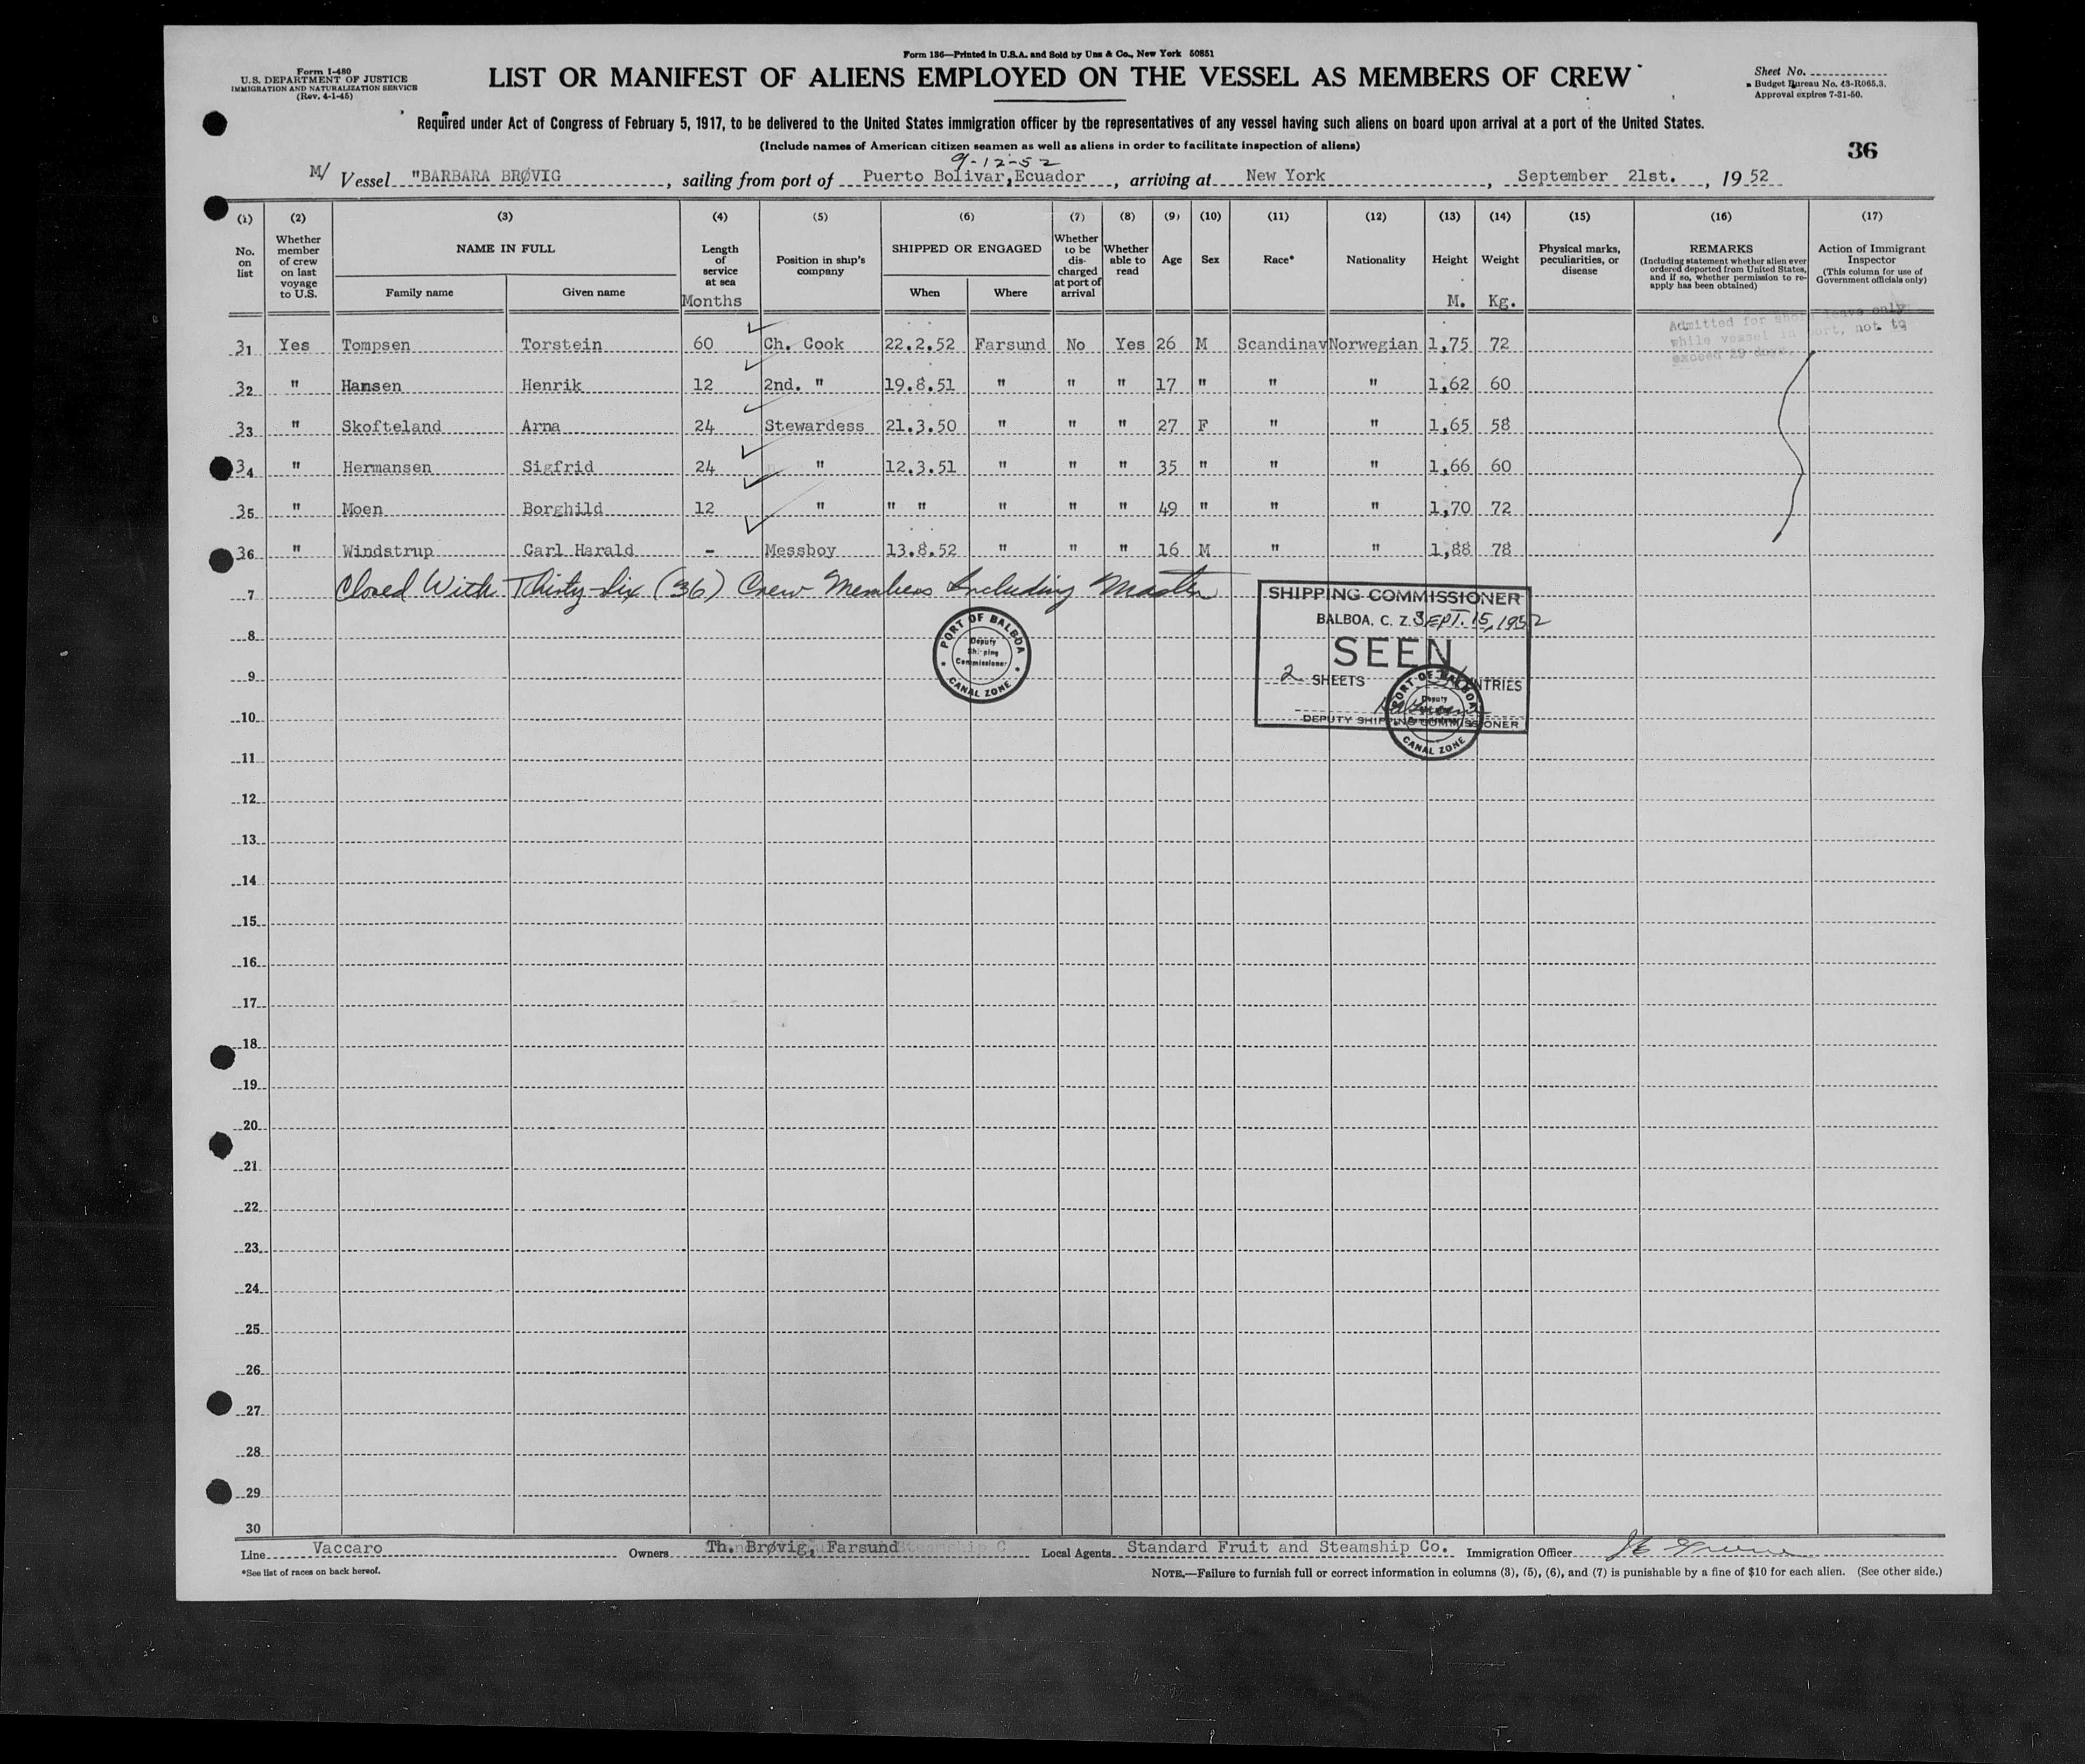 Form 136—Printed in U.S.A. and Sold by Unz & Co., New York 50851
Form I-480
U.S. DEPARTMENT OF JUSTICE
IMMIGRATION AND NATURALIZATION SERVICE
(Rev. 4-1-45)
LIST OR MANIFEST OF ALIENS EMPLOYED ON THE VESSEL AS MEMBERS OF CREW
Sheet No.
Budget Bureau No. 43-R065.3.
Approval expires 7-31-50.
Required under Act of Congress of February 5, 1917, to be delivered to the United States immigration officer by the representatives of any vessel having such aliens on board upon arrival at a port of the United States.
(Include names of American citizen seamen as well as aliens in order to facilitate inspection of aliens)
36
9-12-52
M/ Vessel "BARBARA BRØVIG, sailing from port of Puerto Bolivar, Ecuador, arriving at New York, September 21st., 19 52
(1) (2) (3) (4) (5) (6) (7) (8) (9) (10) (11) (12) (13) (14) (15) (16) (17)
No. on list
Whether member of crew on last voyage to U.S.
NAME IN FULL
Family name Given name
Length of service at sea
Months
Position in ship's company
SHIPPED OR ENGAGED
When Where
Whether to be discharged at port of arrival
Whether able to read
Age
Sex
Race*
Nationality
Height
M.
Weight
Kg.
Physical marks, peculiarities, or disease
REMARKS
(Including statement whether alien ever ordered deported from United States, and if so, whether permission to re-apply has been obtained)
Action of Immigrant Inspector
(This column for use of Government officials only)
Admitted for shore leave only
while vessel in port, not to
exceed 29 days.
31 Yes Tompsen Torstein 60 Ch. Cook 22.2.52 Farsund No Yes 26 M Scandinav Norwegian 1,75 72
32 " Hansen Henrik 12 2nd. " 19.8.51 " " " 17 " " " 1,62 60
33 " Skofteland Arna 24 Stewardess 21.3.50 " " " 27 F " " 1,65 58
34 " Hermansen Sigfrid 24 " 12.3.51 " " " 35 " " " 1,66 60
35 " Moen Borghild 12 " " " " " " 49 " " " 1,70 72
36 " Windstrup Carl Harald - Messboy 13.8.52 " " " 16 M " " 1,88 78
7 Closed With Thirty-Six (36) Crew Members Including Master
SHIPPING COMMISSIONER
BALBOA, C. Z. SEPT. 15, 1952
SEEN
2 SHEETS ENTRIES
DEPUTY SHIPPING COMMISSIONER
PORT OF BALBOA
Deputy
Shipping
Commissioner
CANAL ZONE
PORT OF BALBOA
Deputy
CANAL ZONE
8
9
10
11
12
13
14
15
16
17
18
19
20
21
22
23
24
25
26
27
28
29
30
Line Vaccaro Owners Th. Brøvig, Farsund Local Agents Standard Fruit and Steamship Co. Immigration Officer
*See list of races on back hereof.
NOTE.—Failure to furnish full or correct information in columns (3), (5), (6), and (7) is punishable by a fine of $10 for each alien. (See other side.)